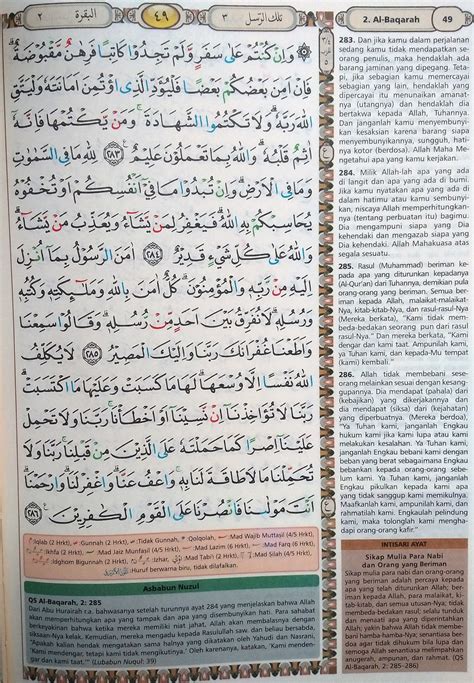 البقرة ٢
٤٩
تلك الرسل ٣
2. Al-Baqarah
49
۞ وَاِنْ كُنْتُمْ عَلٰى سَفَرٍ وَّلَمْ تَجِدُوْا كَاتِبًا فَرِهٰنٌ مَّقْبُوْضَةٌ ۗ
فَاِنْ اَمِنَ بَعْضُكُمْ بَعْضًا فَلْيُؤَدِّ الَّذِى اؤْتُمِنَ اَمَانَتَهٗ وَلْيَتَّقِ
اللّٰهَ رَبَّهٗ ۗ وَلَا تَكْتُمُوا الشَّهَادَةَ ۗ وَمَنْ يَّكْتُمْهَا فَاِنَّهٗٓ
اٰثِمٌ قَلْبُهٗ ۗ وَاللّٰهُ بِمَا تَعْمَلُوْنَ عَلِيْمٌ ۝٢٨٣ لِلّٰهِ مَا فِى السَّمٰوٰتِ
وَمَا فِى الْاَرْضِ ۗ وَاِنْ تُبْدُوْا مَا فِيْٓ اَنْفُسِكُمْ اَوْ تُخْفُوْهُ
يُحَاسِبْكُمْ بِهِ اللّٰهُ ۗ فَيَغْفِرُ لِمَنْ يَّشَاۤءُ وَيُعَذِّبُ مَنْ يَّشَاۤءُ ۗ
وَاللّٰهُ عَلٰى كُلِّ شَيْءٍ قَدِيْرٌ ۝٢٨٤ اٰمَنَ الرَّسُوْلُ بِمَآ اُنْزِلَ
اِلَيْهِ مِنْ رَّبِّهٖ وَالْمُؤْمِنُوْنَ ۗ كُلٌّ اٰمَنَ بِاللّٰهِ وَمَلٰۤىِٕكَتِهٖ وَكُتُبِهٖ
وَرُسُلِهٖ ۗ لَا نُفَرِّقُ بَيْنَ اَحَدٍ مِّنْ رُّسُلِهٖ ۗ وَقَالُوْا سَمِعْنَا
وَاَطَعْنَا غُفْرَانَكَ رَبَّنَا وَاِلَيْكَ الْمَصِيْرُ ۝٢٨٥ لَا يُكَلِّفُ
اللّٰهُ نَفْسًا اِلَّا وُسْعَهَا ۗ لَهَا مَا كَسَبَتْ وَعَلَيْهَا مَا اكْتَسَبَتْ ۗ
رَبَّنَا لَا تُؤَاخِذْنَآ اِنْ نَّسِيْنَآ اَوْ اَخْطَأْنَا ۚ رَبَّنَا وَلَا تَحْمِلْ
عَلَيْنَآ اِصْرًا كَمَا حَمَلْتَهٗ عَلَى الَّذِيْنَ مِنْ قَبْلِنَا ۚ رَبَّنَا وَلَا
تُحَمِّلْنَا مَا لَا طَاقَةَ لَنَا بِهٖ ۚ وَاعْفُ عَنَّا ۗ وَاغْفِرْ لَنَا ۗ وَارْحَمْنَا ۗ
اَنْتَ مَوْلٰىنَا فَانْصُرْنَا عَلَى الْقَوْمِ الْكٰفِرِيْنَ ۝٢٨٦
:Iqlab (2 Hrkt), :Gunnah (2 Hrkt), :Tidak Gunnah, :Qolqolah, :Mad Wajib Muttasil (4/5 Hrkt),
:Ikhfa (2 Hrkt), :Mad Jaiz Munfasil (4/5 Hrkt), :Mad Lazim (6 Hrkt), :Mad Farq (6 Hrkt),
:Idghom Bigunnah (2 Hrkt), :Mad Tabi (2 Hrkt), :Mad Silah (4/5 Hrkt),
:Huruf berwarna biru, tidak dilafalkan.
Asbabun Nuzul
QS Al-Baqarah, 2: 285
Dari Abu Hurairah r.a. bahwasanya setelah turunnya ayat 284 yang menjelaskan bahwa Allah
akan memperhitungkan apa yang tampak dan apa yang disembunyikan hati. Para sahabat
berkeyakinan bahwa ketika mereka memiliki niat jahat, Allah akan membalasnya dengan
siksaan neraka. Kemudian, mereka mengadu kepada Rasulullah saw. dan beliau bersabda,
"Apakah kalian hendak mengatakan sama halnya yang dikatakan oleh Yahudi dan Nasrani,
'Kami mendengar, tetapi kami tidak mengikutinya.' Oleh karenanya, katakan, 'Kami mendengar
dan kami taat.'" (Lubabun Nuqul: 39)
283. Dan jika kamu dalam perjalanan
sedang kamu tidak mendapatkan se-
orang penulis, maka hendaklah ada
barang jaminan yang dipegang. Teta-
pi, jika sebagian kamu memercayai
sebagian yang lain, hendaklah yang
dipercayai itu menunaikan amanat-
nya (utangnya) dan hendaklah dia
bertakwa kepada Allah, Tuhannya.
Dan janganlah kamu menyembunyi-
kan kesaksian karena barang siapa
menyembunyikannya, sungguh, hati-
nya kotor (berdosa). Allah Maha Me-
ngetahui apa yang kamu kerjakan.
284. Milik Allah-lah apa yang ada
di langit dan apa yang ada di bumi.
Jika kamu nyatakan apa yang ada di
dalam hatimu atau kamu sembunyi-
kan, niscaya Allah memperhitungkan-
nya (tentang perbuatan itu) bagimu.
Dia mengampuni siapa yang Dia
kehendaki dan mengazab siapa yang
Dia kehendaki. Allah Mahakuasa atas
segala sesuatu.
285. Rasul (Muhammad) beriman ke-
pada apa yang diturunkan kepadanya
(Al-Qur'an) dari Tuhannya, demikian pula
orang-orang yang beriman. Semua ber-
iman kepada Allah, malaikat-malaikat-
Nya, kitab-kitab-Nya, dan rasul-rasul-Nya.
(Mereka berkata), "Kami tidak mem-
beda-bedakan seorang pun dari rasul
rasul-Nya." Dan mereka berkata, "Kami
dengar dan kami taat. Ampunilah kami,
ya Tuhan kami, dan kepada-Mu tempat
(kami) kembali."
286. Allah tidak membebani sese-
orang melainkan sesuai dengan kesang-
gupannya. Dia mendapat (pahala) dari
(kebajikan) yang dikerjakannya dan
dia mendapat (siksa) dari (kejahatan)
yang diperbuatnya. (Mereka berdoa),
"Ya Tuhan kami, janganlah Engkau
hukum kami jika kami lupa atau kami
melakukan kesalahan. Ya Tuhan kami,
janganlah Engkau bebani kami dengan
beban yang berat sebagaimana Engkau
bebankan kepada orang-orang sebe-
lum kami. Ya Tuhan kami, janganlah
Engkau pikulkan kepada kami apa
yang tidak sanggup kami memikulnya.
Maafkanlah kami, ampunilah kami, dan
rahmatilah kami. Engkaulah pelindung
kami, maka tolonglah kami mengha-
dapi orang-orang kafir."
INTISARI AYAT
Sikap Mulia Para Nabi
dan Orang yang Beriman
Sikap mulia para nabi dan orang-orang
yang beriman adalah percaya kepada
apa yang telah diturunkan oleh Allah,
beriman kepada-Nya, para malaikat, ki-
tab-kitab, dan semua utusan-Nya; tidak
membeda-bedakan rasul; selalu tunduk
dan menaati yang diperintahkan Allah;
meyakini bahwa Allah tidak membe-
bani hamba-hamba-Nya; senantiasa ber-
doa agar tidak dihukum bila lupa dan
senantiasa beriman selalu meminta
anugerah, ampunan, dan rahmat. (QS
Al-Baqarah, 2: 285-286)